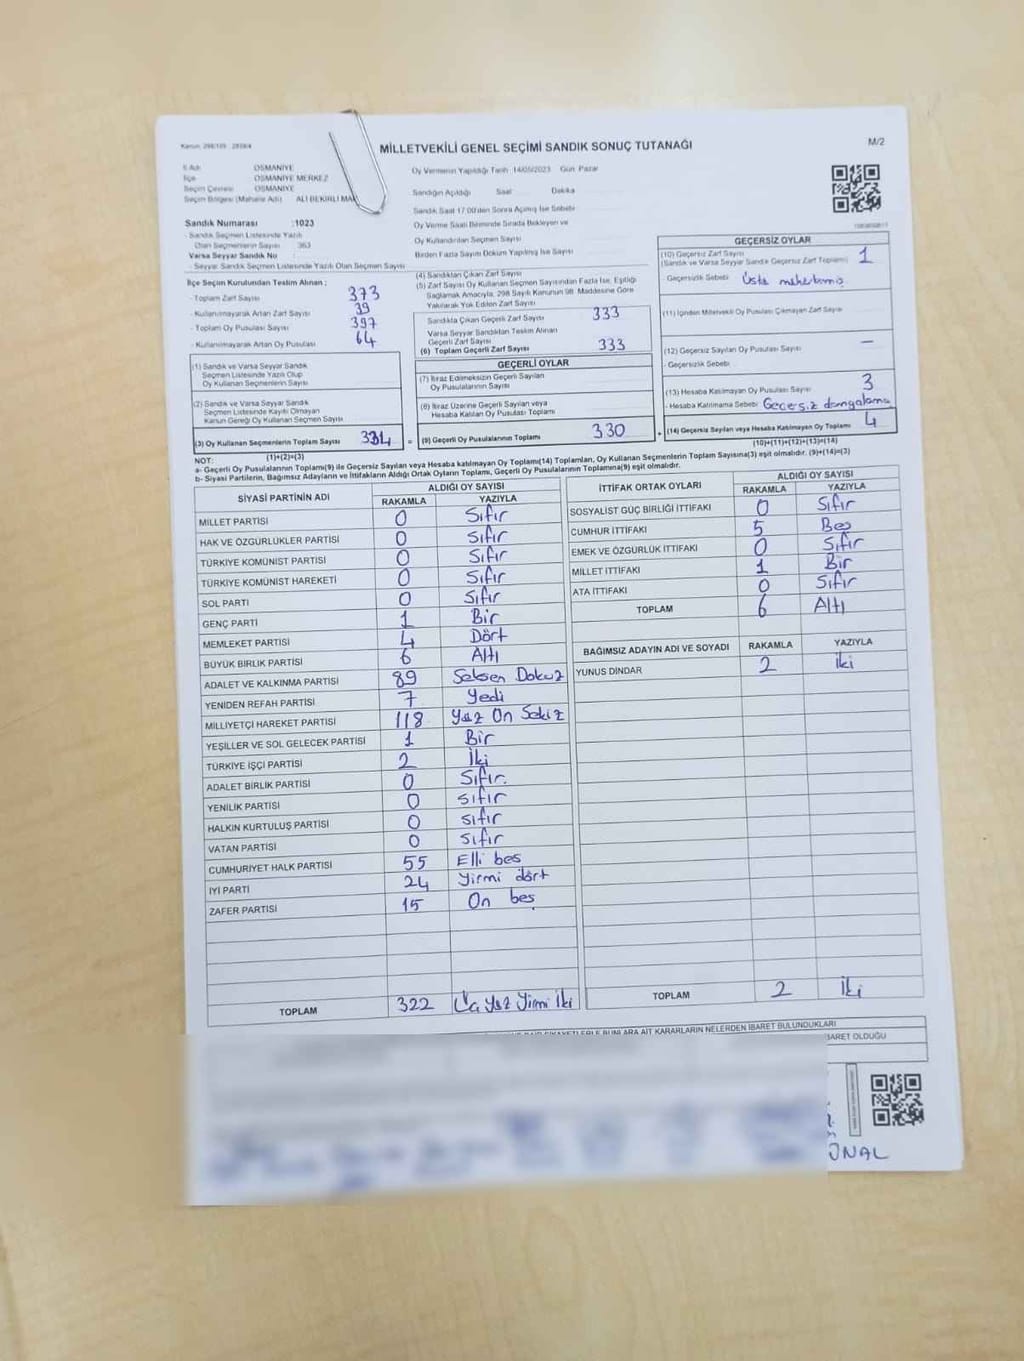 MİLLETVEKİLİ GENEL SEÇİMİ SANDIK SONUÇ TUTANAĞI
M/2
İl Adı OSMANİYE
İlçe OSMANİYE MERKEZ
Seçim Çevresi OSMANİYE
Seçim Bölgesi (Mahalle Adı) ALİ BEKİRLİ
Sandık Numarası :1023
- Sandık Seçmen Listesinde Yazılı
Olan Seçmenlerin Sayısı 363
Varsa Seyyar Sandık No
- Seyyar Sandık Seçmen Listesinde Yazılı Olan Seçmen Sayısı
Oy Vermenin Yapıldığı Tarih 14/05/2023 Gün Pazar
Sandığın Açıldığı Saat Dakika
Sandık Saat 17:00'den Sonra Açılmış İse Sebebi
Oy Verme Saati Bitiminde Sırada Bekleyen ve
Oy Kullandırılan Seçmen Sayısı
Birden Fazla Sayım Döküm Yapılmış İse Sayısı
İlçe Seçim Kurulundan Teslim Alınan ;
- Toplam Zarf Sayısı 373
- Kullanılmayarak Artan Zarf Sayısı 39
- Toplam Oy Pusulası Sayısı 397
- Kullanılmayarak Artan Oy Pusulası 64
(1) Sandık ve Varsa Seyyar Sandık
Seçmen Listesinde Yazılı Olup
Oy Kullanan Seçmenlerin Sayısı
(2) Sandık ve Varsa Seyyar Sandık
Seçmen Listesinde Kayıtlı Olmayan
Kanun Gereği Oy Kullanan Seçmen Sayısı
(3) Oy Kullanan Seçmenlerin Toplam Sayısı 334
(1)+(2)=(3)
(4) Sandıktan Çıkan Zarf Sayısı
(5) Zarf Sayısı Oy Kullanan Seçmen Sayısından Fazla İse, Eşitliği
Sağlamak Amacıyla, 298 Sayılı Kanunun 98. Maddesine Göre
Yakılarak Yok Edilen Zarf Sayısı
Sandıkta Çıkan Geçerli Zarf Sayısı 333
Varsa Seyyar Sandıktan Teslim Alınan
Geçerli Zarf Sayısı
(6) Toplam Geçerli Zarf Sayısı 333
GEÇERLİ OYLAR
(7) İtiraz Edilmeksizin Geçerli Sayılan
Oy Pusulalarının Sayısı
(8) İtiraz Üzerine Geçerli Sayılan veya
Hesaba Katılan Oy Pusulası Toplamı
= (9) Geçerli Oy Pusulalarının Toplamı 330
GEÇERSİZ OYLAR
(10) Geçersiz Zarf Sayısı 1
(Sandık ve Varsa Seyyar Sandık Geçersiz Zarf Toplamı)
Geçersizlik Sebebi
(11) İçinden Milletvekili Oy Pusulası Çıkmayan Zarf Sayısı
(12) Geçersiz Sayılan Oy Pusulası Sayısı —
- Geçersizlik Sebebi
(13) Hesaba Katılmayan Oy Pusulası Sayısı 3
- Hesaba Katılmama Sebebi Geçersiz damgalama
+ (14) Geçersiz Sayılan veya Hesaba Katılmayan Oy Toplamı 4
(10)+(11)+(12)+(13)=(14)
NOT:
a- Geçerli Oy Pusulalarının Toplamı(9) ile Geçersiz Sayılan veya Hesaba katılmayan Oy Toplamı(14) Toplamları, Oy Kullanan Seçmenlerin Toplam Sayısına(3) eşit olmalıdır. (9)+(14)=(3)
b- Siyasi Partilerin, Bağımsız Adayların ve İttifakların Aldığı Ortak Oyların Toplamı, Geçerli Oy Pusulalarının Toplamına(9) eşit olmalıdır.
SİYASİ PARTİNİN ADI ALDIĞI OY SAYISI
RAKAMLA YAZIYLA
MİLLET PARTİSİ 0 Sıfır
HAK VE ÖZGÜRLÜKLER PARTİSİ 0 Sıfır
TÜRKİYE KOMÜNİST PARTİSİ 0 Sıfır
TÜRKİYE KOMÜNİST HAREKETİ 0 Sıfır
SOL PARTİ 0 Sıfır
GENÇ PARTİ 1 Bir
MEMLEKET PARTİSİ 4 Dört
BÜYÜK BİRLİK PARTİSİ 6 Altı
ADALET VE KALKINMA PARTİSİ 89 Seksen Dokuz
YENİDEN REFAH PARTİSİ 7 Yedi
MİLLİYETÇİ HAREKET PARTİSİ 118 Yüz On Sekiz
YEŞİLLER VE SOL GELECEK PARTİSİ 1 Bir
TÜRKİYE İŞÇİ PARTİSİ 2 İki
ADALET BİRLİK PARTİSİ 0 Sıfır.
YENİLİK PARTİSİ 0 Sıfır
HALKIN KURTULUŞ PARTİSİ 0 Sıfır
VATAN PARTİSİ 0 Sıfır
CUMHURİYET HALK PARTİSİ 55 Elli beş
İYİ PARTİ 24 Yirmi dört
ZAFER PARTİSİ 15 On beş
TOPLAM 322 Üç Yüz Yirmi İki
İTTİFAK ORTAK OYLARI ALDIĞI OY SAYISI
RAKAMLA YAZIYLA
SOSYALİST GÜÇ BİRLİĞİ İTTİFAKI 0 Sıfır
CUMHUR İTTİFAKI 5 Beş
EMEK VE ÖZGÜRLÜK İTTİFAKI 0 Sıfır
MİLLET İTTİFAKI 1 Bir
ATA İTTİFAKI 0 Sıfır
TOPLAM 6 Altı
BAĞIMSIZ ADAYIN ADI VE SOYADI RAKAMLA YAZIYLA
YUNUS DİNDAR 2 İki
TOPLAM 2 İki
BUNLARA AİT KARARLARIN NELERDEN İBARET BULUNDUKLARI
İBARET OLDUĞU
ÜNAL